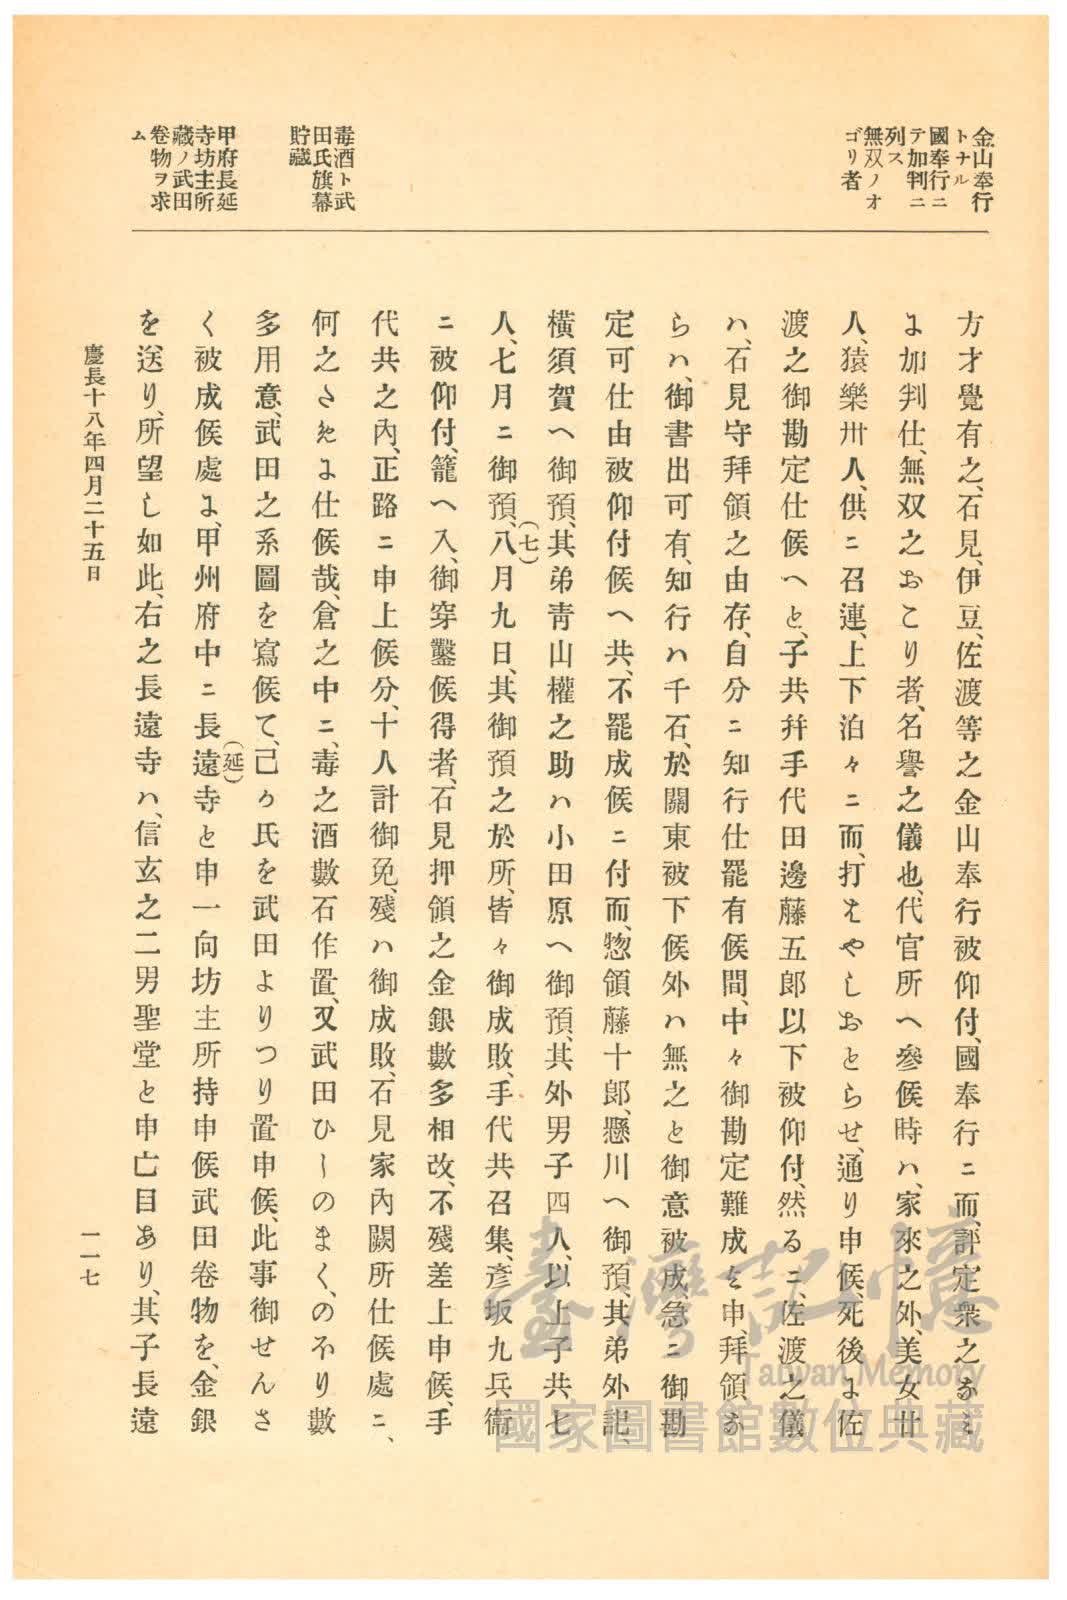 金山奉行
トナル
國奉行ニ
テ加判ニ
列ス
無双ノオ
ゴリ者
毒酒ト武
田氏旗幕
貯藏
甲府長延
寺坊主所
藏ノ武田
卷物ヲ求
ム
方才覺有之、石見、伊豆、佐渡等之金山奉行被仰付、國奉行ニ而、評定衆之なミ
よ加判仕、無双之おこり者、名譽之儀也、代官所へ參候時ハ、家來之外、美女廿
人、猿樂卅人、供ニ召連、上下泊々ニ而、打はやしおとらせ、通り申候、死後よ佐
渡之御勘定仕候へと、子共幷手代田邊藤五郎以下被仰付、然るニ、佐渡之儀
ハ、石見守拜領之由存、自分ニ知行仕罷有候間、中々御勘定難成と申、拜領な
らハ、御書出可有、知行ハ千石、於關東被下候外ハ無之と御意被成、急ニ御勘
定可仕由被仰付候へ共、不罷成候ニ付而、惣領藤十郎、懸川へ御預、其弟外記、
橫須賀へ御預、其弟靑山權之助ハ小田原へ御預、其外男子四人、以上子共七
人、七月ニ御預、八月九日、其御預之於所、皆々御成敗、手代共召集、彥坂九兵衞
(七)
ニ被仰付、籠へ入、御穿鑿候得者、石見押領之金銀數多相改、不殘差上申候、手
代共之內、正路ニ申上候分、十人計御免、殘ハ御成敗、石見家內闕所仕候處ニ、
何之ためよ仕候哉、倉之中ニ、毒之酒數石作置、又武田ひしのまく、のほり數
多用意、武田之系圖を寫候て、己か氏を武田よりつり置申候、此事御せんさ
く被成候處よ、甲州府中ニ長遠寺と申一向坊主所持申候武田卷物を、金銀
(延)
を送り、所望し如此、右之長遠寺ハ、信玄之二男聖堂と申亡目あり、其子長遠
慶長十八年四月二十五日
一一七
臺灣記憶
Taiwan Memory
國家圖書館數位典藏